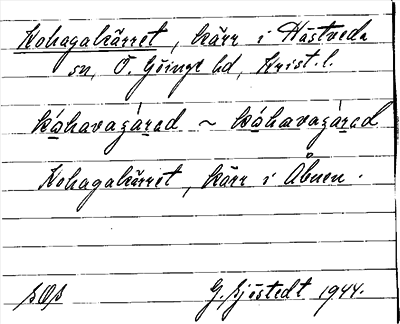 Kohagakärret, kärr i Hästveda
sn, Ö. Göinge hd, Krist. l.
kåhavagárad ~ kåhavagárad
Kohagakärret, kärr i Åbuen.
SOS
G. Sjöstedt 1944.